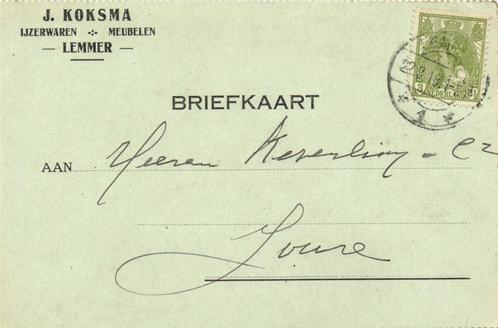 J. KOKSMA
IJZERWAREN ⁘ MEUBELEN
— LEMMER —
BRIEFKAART
AAN Heeren Keverling & Cz
Joure
3 NEDERLAND
1